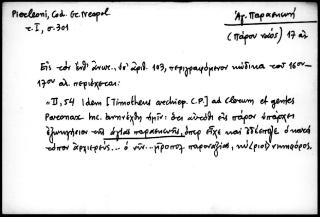 Pierleoni, Cod. Gr. Neapol.
τ. I, σ. 301
Ἁγ. Παρασκευή
(Πάρου νῆσος) 17 αἰ.
Εἰς τὸν ὑπ' ἀριθ. 103, περιγραφόμενον κώδικα τοῦ 16ου-
17ου αἰ. περιέχεται:
« II, 54 Idem [Timotheus archiep. C.P.] ad Clerum et gentes
Paronaxiae Inc. ἀνηνέχθη ἡμῖν: ὅτι αὐτόθι εἰς πάρον ὑπάρχει
ἐξωκκλήσιον τῆς ἁγίας παρασκευῆς, ὅπερ εἶχε καὶ ὁ κατὰ
τόπον ἀρχιερεύς... ὁ νῦν... μητροπολ. παροναξίας, κύ(ριος) νικηφόρος,